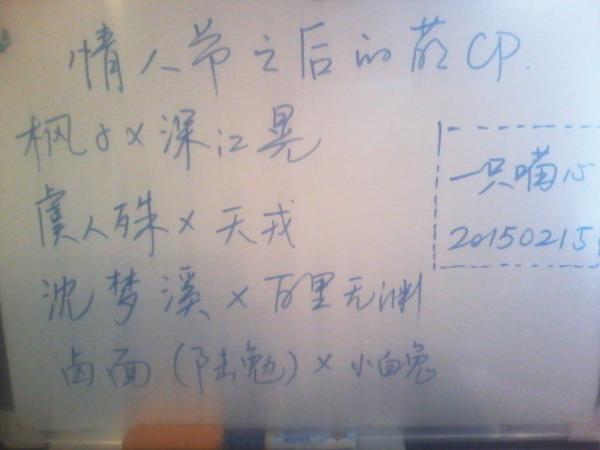 情人节之后的萌CP.
枫子×深江晃
虞人殊×天戎
沈梦溪×百里无渊
卤面(陆勉)×小白兔
一只喵心
20150215